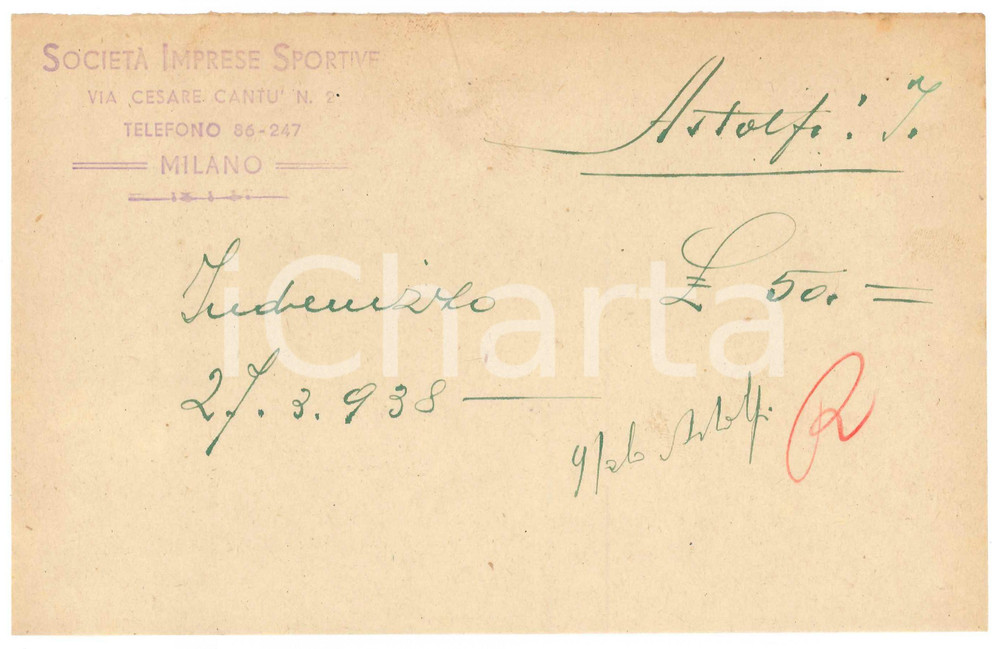 SOCIETÀ IMPRESE SPORTIVE
VIA CESARE CANTU' N. 2
TELEFONO 86-247
MILANO
Astolfi I.
Indenizzo £ 50.=
27.3.938
Astolfi
R
iCharta